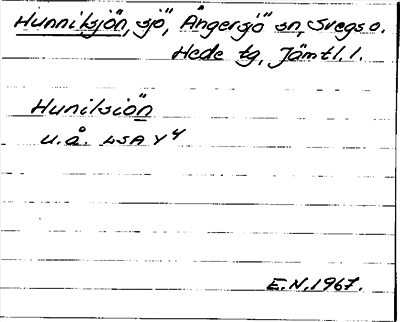 Hunniksjön, sjö, Ångersjö sn, Svegs o.
Hede tg, Jämtl. l.
Hunilsiön
u.å. LSA Y 4
E.N. 1967.